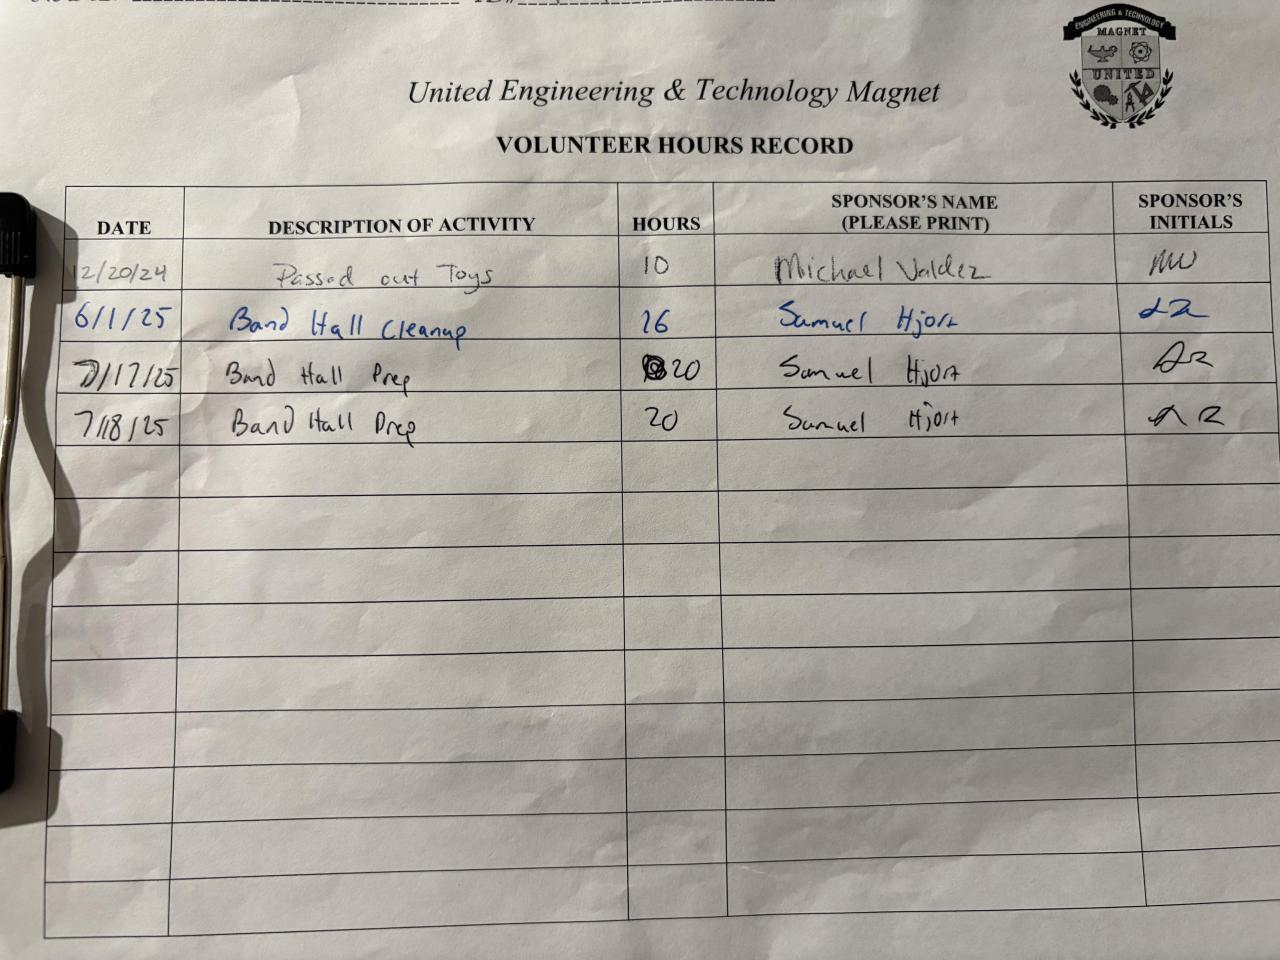 ENGINEERING & TECHNOLOGY
MAGNET
UNITED
United Engineering & Technology Magnet
VOLUNTEER HOURS RECORD
DATE DESCRIPTION OF ACTIVITY HOURS SPONSOR'S NAME (PLEASE PRINT) SPONSOR'S INITIALS
12/20/24 Passed out Toys 10 Michael Valdez MV
6/1/25 Band Hall Cleanup 16 Samuel Hjort
7/17/25 Band Hall Prep 20 Samuel Hjort
7/18/25 Band Hall Prep 20 Samuel Hjort